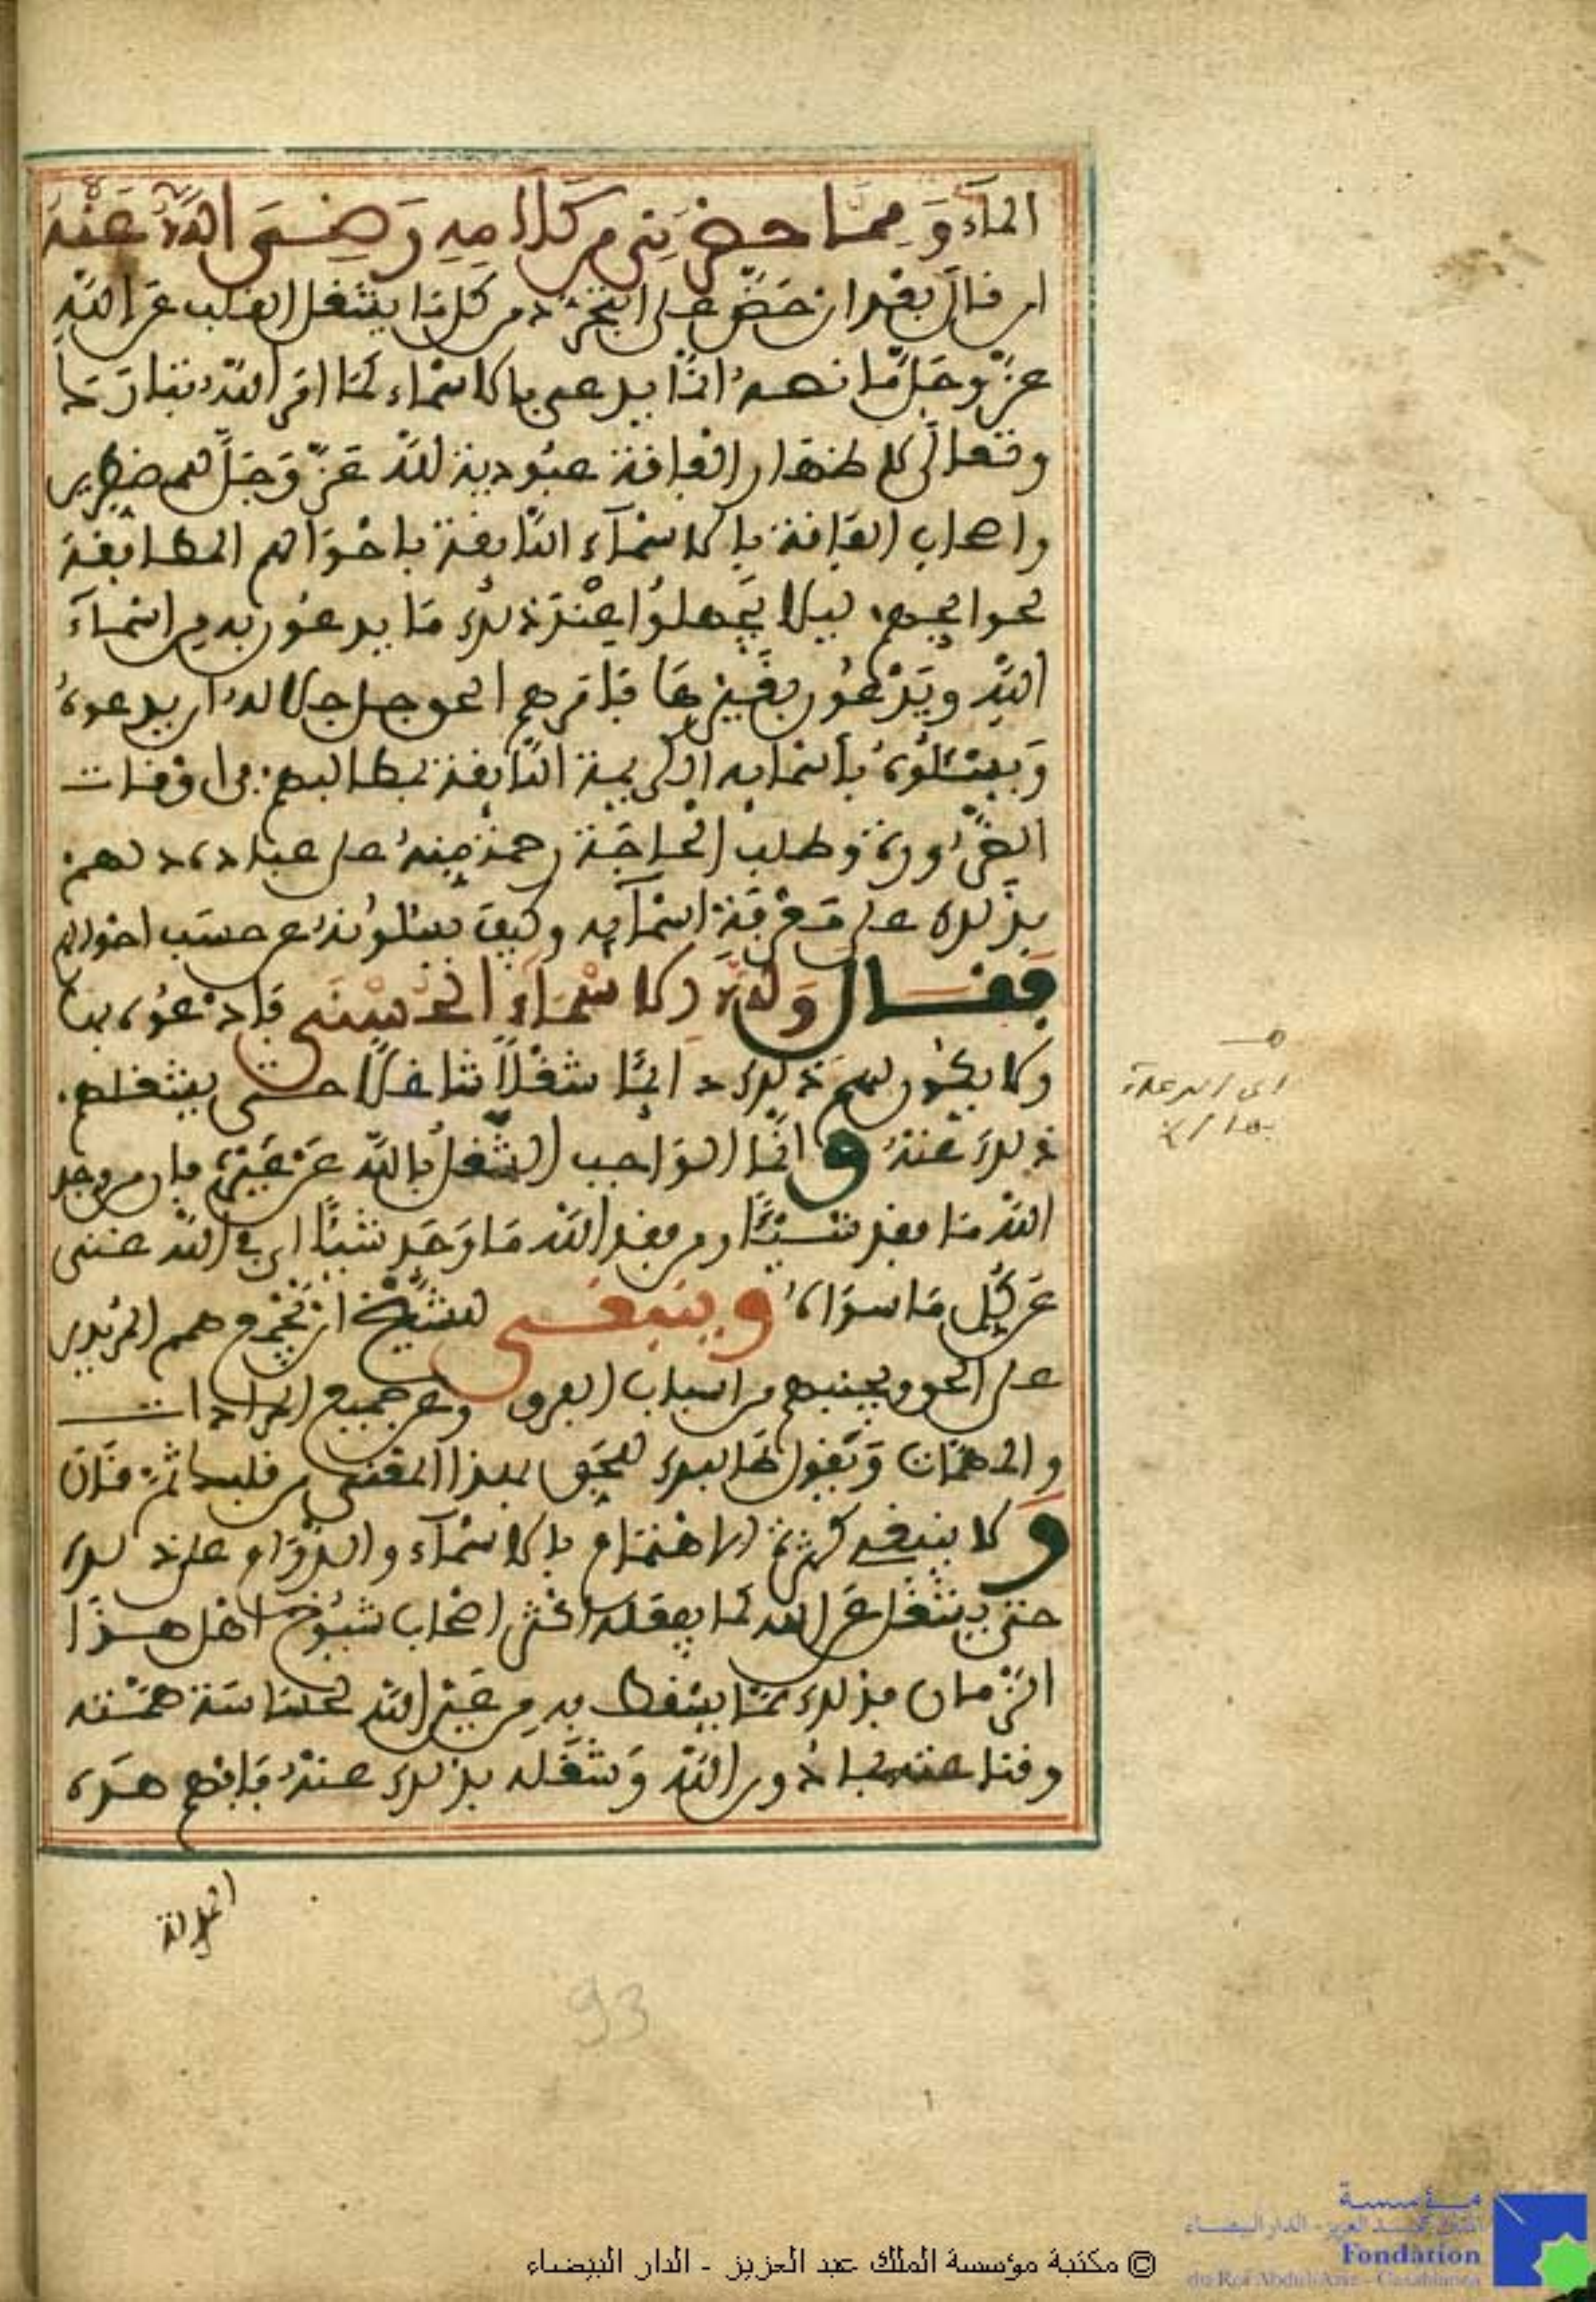 الماء وَمِمَّا حضرَنِي من كَلَامِهِ رَضِيَ اللَّهُ عَنْهُ
ان قال بعد ان حَضَّ على التجرُّد من كل ما يشغل القلب عن الله
عزّ وجلّ ما نصه انما يدعى بالاسماء كما امر الله تبارك
وتعالى لاظهار الفاقة عبودية لله عَزَّ وَجَلَّ للمضطرين
واهل الفاقة بالاسمآء اللائقة باحْوَالهم المطابقة
لحوايجهم ليلا يَجهلوا عِنْدَ ذلك مَا يدعُون به من اسْمآء
اللهِ ويَدْعُون بغيرها فامرهم الحق جل جلاله ان يدعوه
وَيسئلُوه بأسمايه الكريمة اللائقة بمطالبهم في اوقات
الضَّرُورة وطلب الحاجَة رحمة مِنهُ على عباده دلهم
بذلك على مَعْرفة اسْمآيه وكيف يسئلونه على حسَب احوالهم
فقال وَلِلَّهِ الاسْمَاءُ الحُسْنَى فَادْعُوهُ بها
ولا يكون لهم ذلك دائمًا شغْلاً شاغلاً حتى يشغلهم
ذلك عَنهُ وانما الوَاجب الشُّغل بالله عَن غَيْرِهِ فان من وجد
الله مَا فقد شيئًا ومن فقد الله مَا وَجَد شيئًا اي في الله غنى
عَن كُل مَا سوَاه وينبغي للشَّيْخ ان يَجْمع همم المُريدين
على الحق ويجنبهم من اسباب الفرق وعن جميع المرادات
والهمات وَيَقول
وَلا ينبغي كثرة الاهْتمَام بالاسْمآء والدوَام على ذلك
حتى يشْغل عن الله كما يفعله اكثر اصْحاب شيُوخ اهْل هذا
الزمان فذلك ممَّا يسْقط به مِن عَيْن الله لخساسَة همَّته
وقناعته بما دون الله وَشغْله بذلك عنهُ فَافهم هذه
الجملة
93
© مكتبة مؤسسة الملك عبد العزيز - الدار البيضاء
مؤسسة
الملك عبد العزيز - الدار البيضاء
Fondation
du Roi Abdul-Aziz - Casablanca